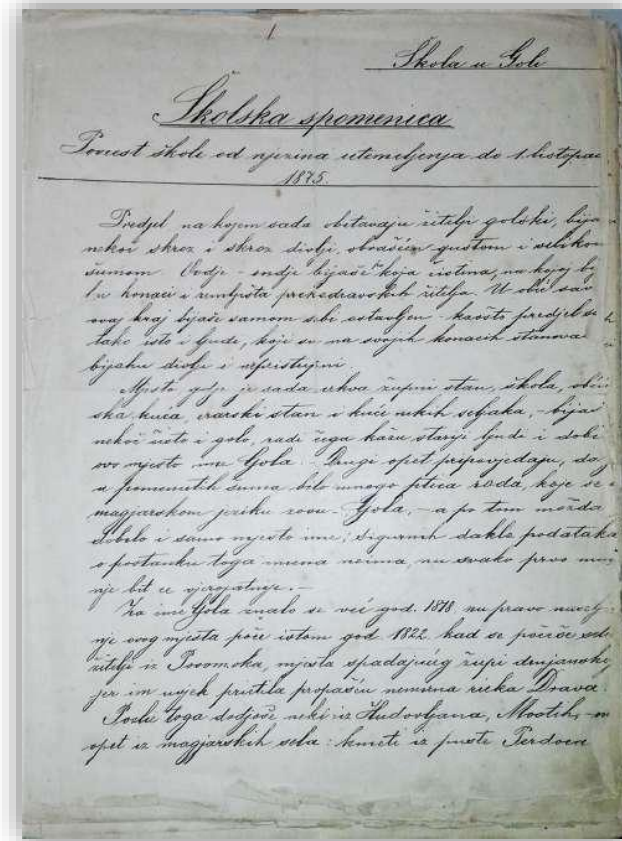 1
Škola u Goli
Školska spomenica
Povest škole od njezina utemeljenja do 1 listopa
1875.
Predjel na kojem sada obitavaju žitelji golski, bija
nekoć skroz i skroz divlji, obrašćen gustom i velikom
šumom. Ovdje-ondje bijaše koja čistina, na kojoj
konaci i zemljišta prekodravskih žitelja. U obće sav
ovaj kraj bijaše samom sebi ostavljen kaošto predjel
tako isto i ljudi, koji se na svojih konacih stanova
bijahu divlji i nepristupni
Mjesto gdje je sada crkva župni stan, škola, obći
ska kuća, erarski stan i kuće nekih seljaka, - bijaš
nekoč čisto i golo, radi čega kažu stariji ljudi i dobi
ovo mjesto ime Gola. - Drugi opet pripovjedaju, da
u pomenutih šuma bilo mnogo ptica roda, koje se
magjarskom jeziku zovu - Gola, - a po tom možda
dobilo i samo mjesto ime; sigurnih dakle podataka
o postanku toga imena neima, nu svako prvo mn
nje bit će vjerojatnije. -
Za ime Gola znalo se već god. 1818 nu pravo
nje ovog mjesta poče istom god. 1822 kad se počeše
žitelji iz Novomoka, mjesta spadajućeg župi drnjanskoj
jer im uvjek prietila propašću nemirna rieka Drava.
Posle toga dodjoše neki iz Hudovljana,
opet iz magjarskih sela: kmeti iz puste